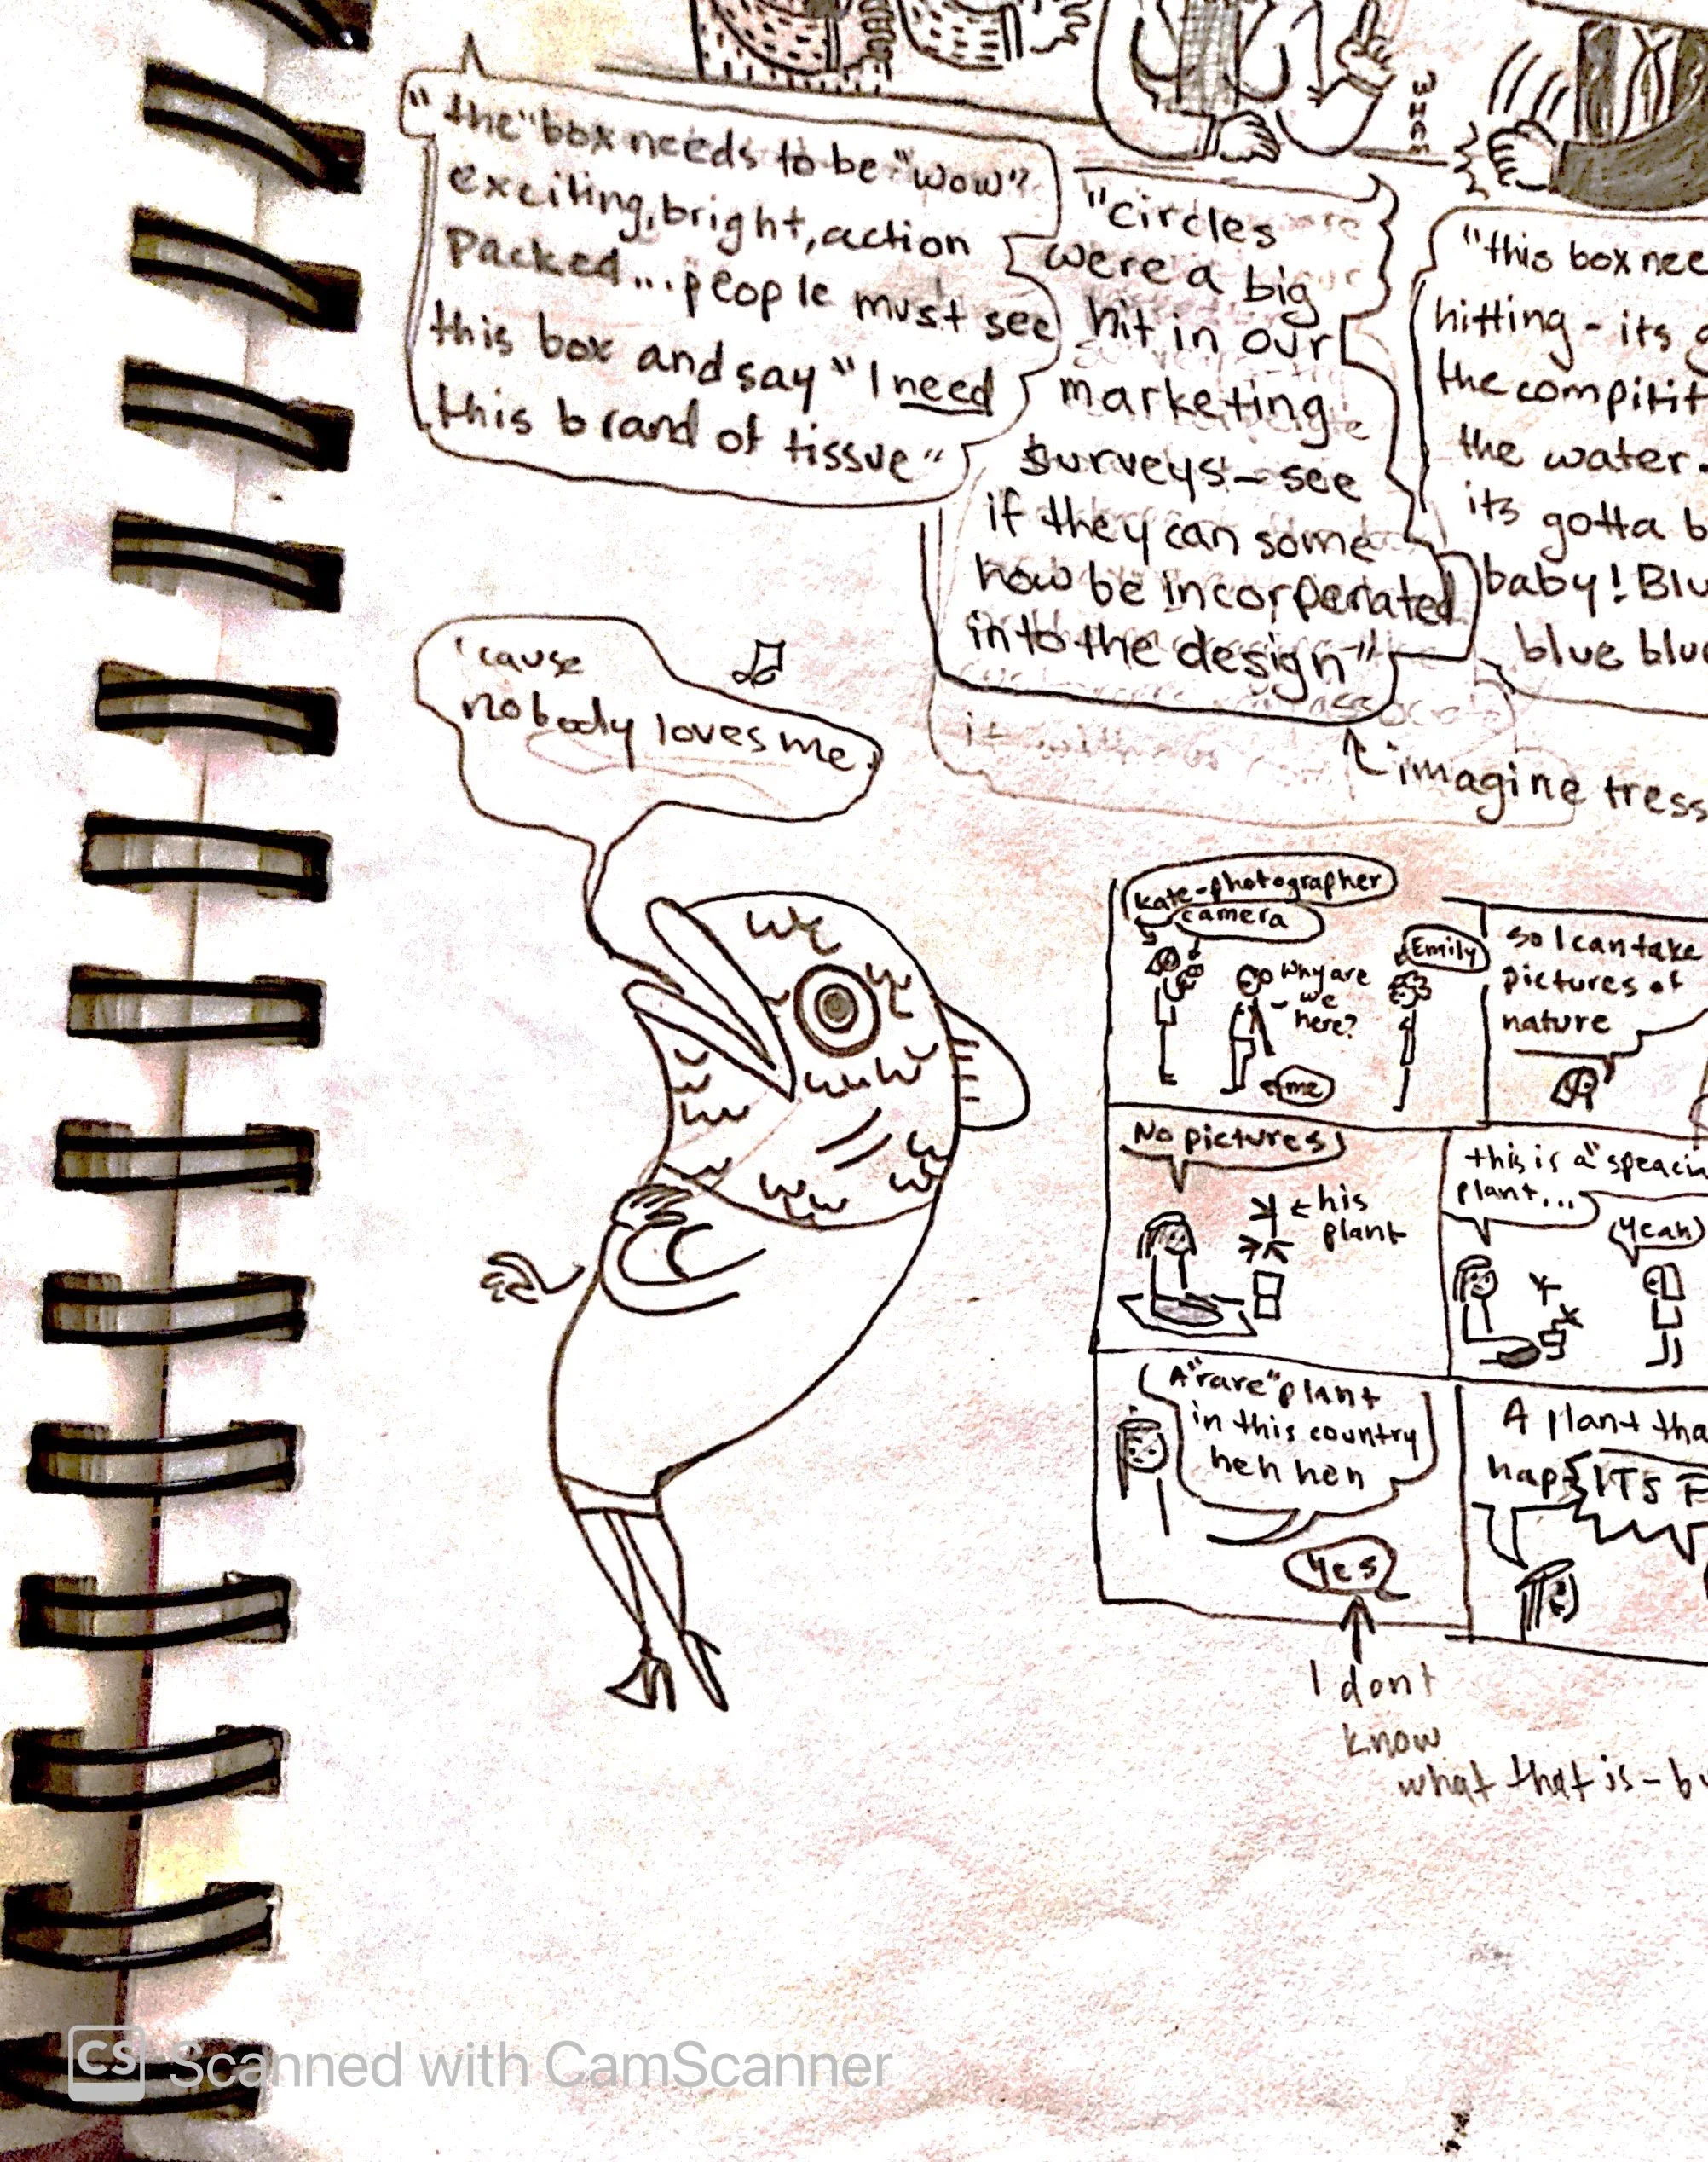 "the" box needs to be "wow"
exciting, bright, action
packed... people must see
this box and say "I need
this brand of tissue"
"circles
were a big
hit in our
marketing
surveys - see
if they can some
how be incorperated
into the design"
"this box nee
hitting - its g
the compitit
the water.
its gotta b
baby! Blu
blue blue
imagine tress
'cause
nobody loves me.
kate-photographer
camera
Why are
we
here?
me
Emily
so I can take
pictures of
nature
No pictures
his
plant
this is a "speacia
plant...
Yeah
A "rare" plant
in this country
heh heh
Yes
A plant tha
hap
ITS F
I dont
know
what that is - bu
CS Scanned with CamScanner